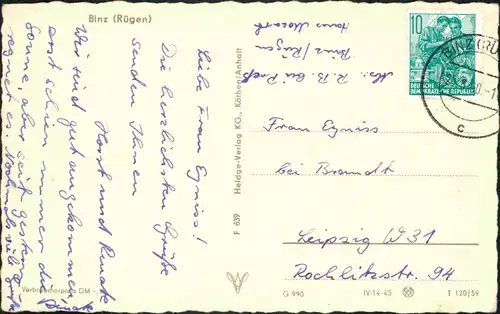 Binz (Rügen)
Liebe Frau Egniss!
Die herzlichsten Grüße
senden Ihnen
Horst und Renate
Wir sind gut angekommen
erst schien immer die
Sonne, aber seit gestern
regnet es. Nochmals viele Grüße
Renate
Verbraucherpreis DM -,
F 639
Heldge-Verlag KG., Köthen/Anhalt
Abs. R. B. bei Preß
Binz/Rügen
Haus
10
DEUTSCHE
DEMOKRATISCHE REPUBLIK
BINZ (RÜ
c
Frau Egniss
bei Brandt
Leipzig W31
Rochlitzstr. 94
G 990
IV-14-45
1 120/59